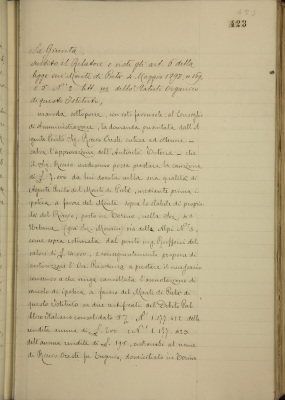 423
La Giunta,
udito il Relatore e visti gli art. 6 della
legge sui Monti di Pietà 4 Maggio 1898, n. 169,
e 5 N° 2 lett. dello Statuto Organico
di questo Istituto,
manda sottoporre, con voto favorevole, al Consiglio
di Amministrazione, la domanda presentata dall'A
Perito Sig. Ronco Oreste intesa ad ottenere
salva l'approvazione dell'Autorità Tutoria che
il Sig. Ronco medesimo possa prestare la cauzione
di L. 7.000 da lui dovuta nella sua qualità di
Perito del Monte di Pietà, mediante prima i-
poteca a favore del Monte sopra lo stabile di proprie-
tà del Ronco, posto in Torino, nella Sez.
Urbana, via delle Alpi N° 3,
come sopra estimato dal perito ing. del
valore di L. e conseguentemente propone di
autorizzare l'On. Presidenza a prestare il necessario
consenso a che venga cancellata l'annotazione di
vincolo di ipoteca a favore del Monte di Pietà di
questo Istituto su due certificati del Debito Pub-
blico Italiano consolidato 5% N° 1.077.412 della
rendita annua di L. 200 e N° 1.157.423
dell'annua rendita di L. 190, intestati al nome
di Ronco Oreste fu Eugenio, domiciliato in Torino